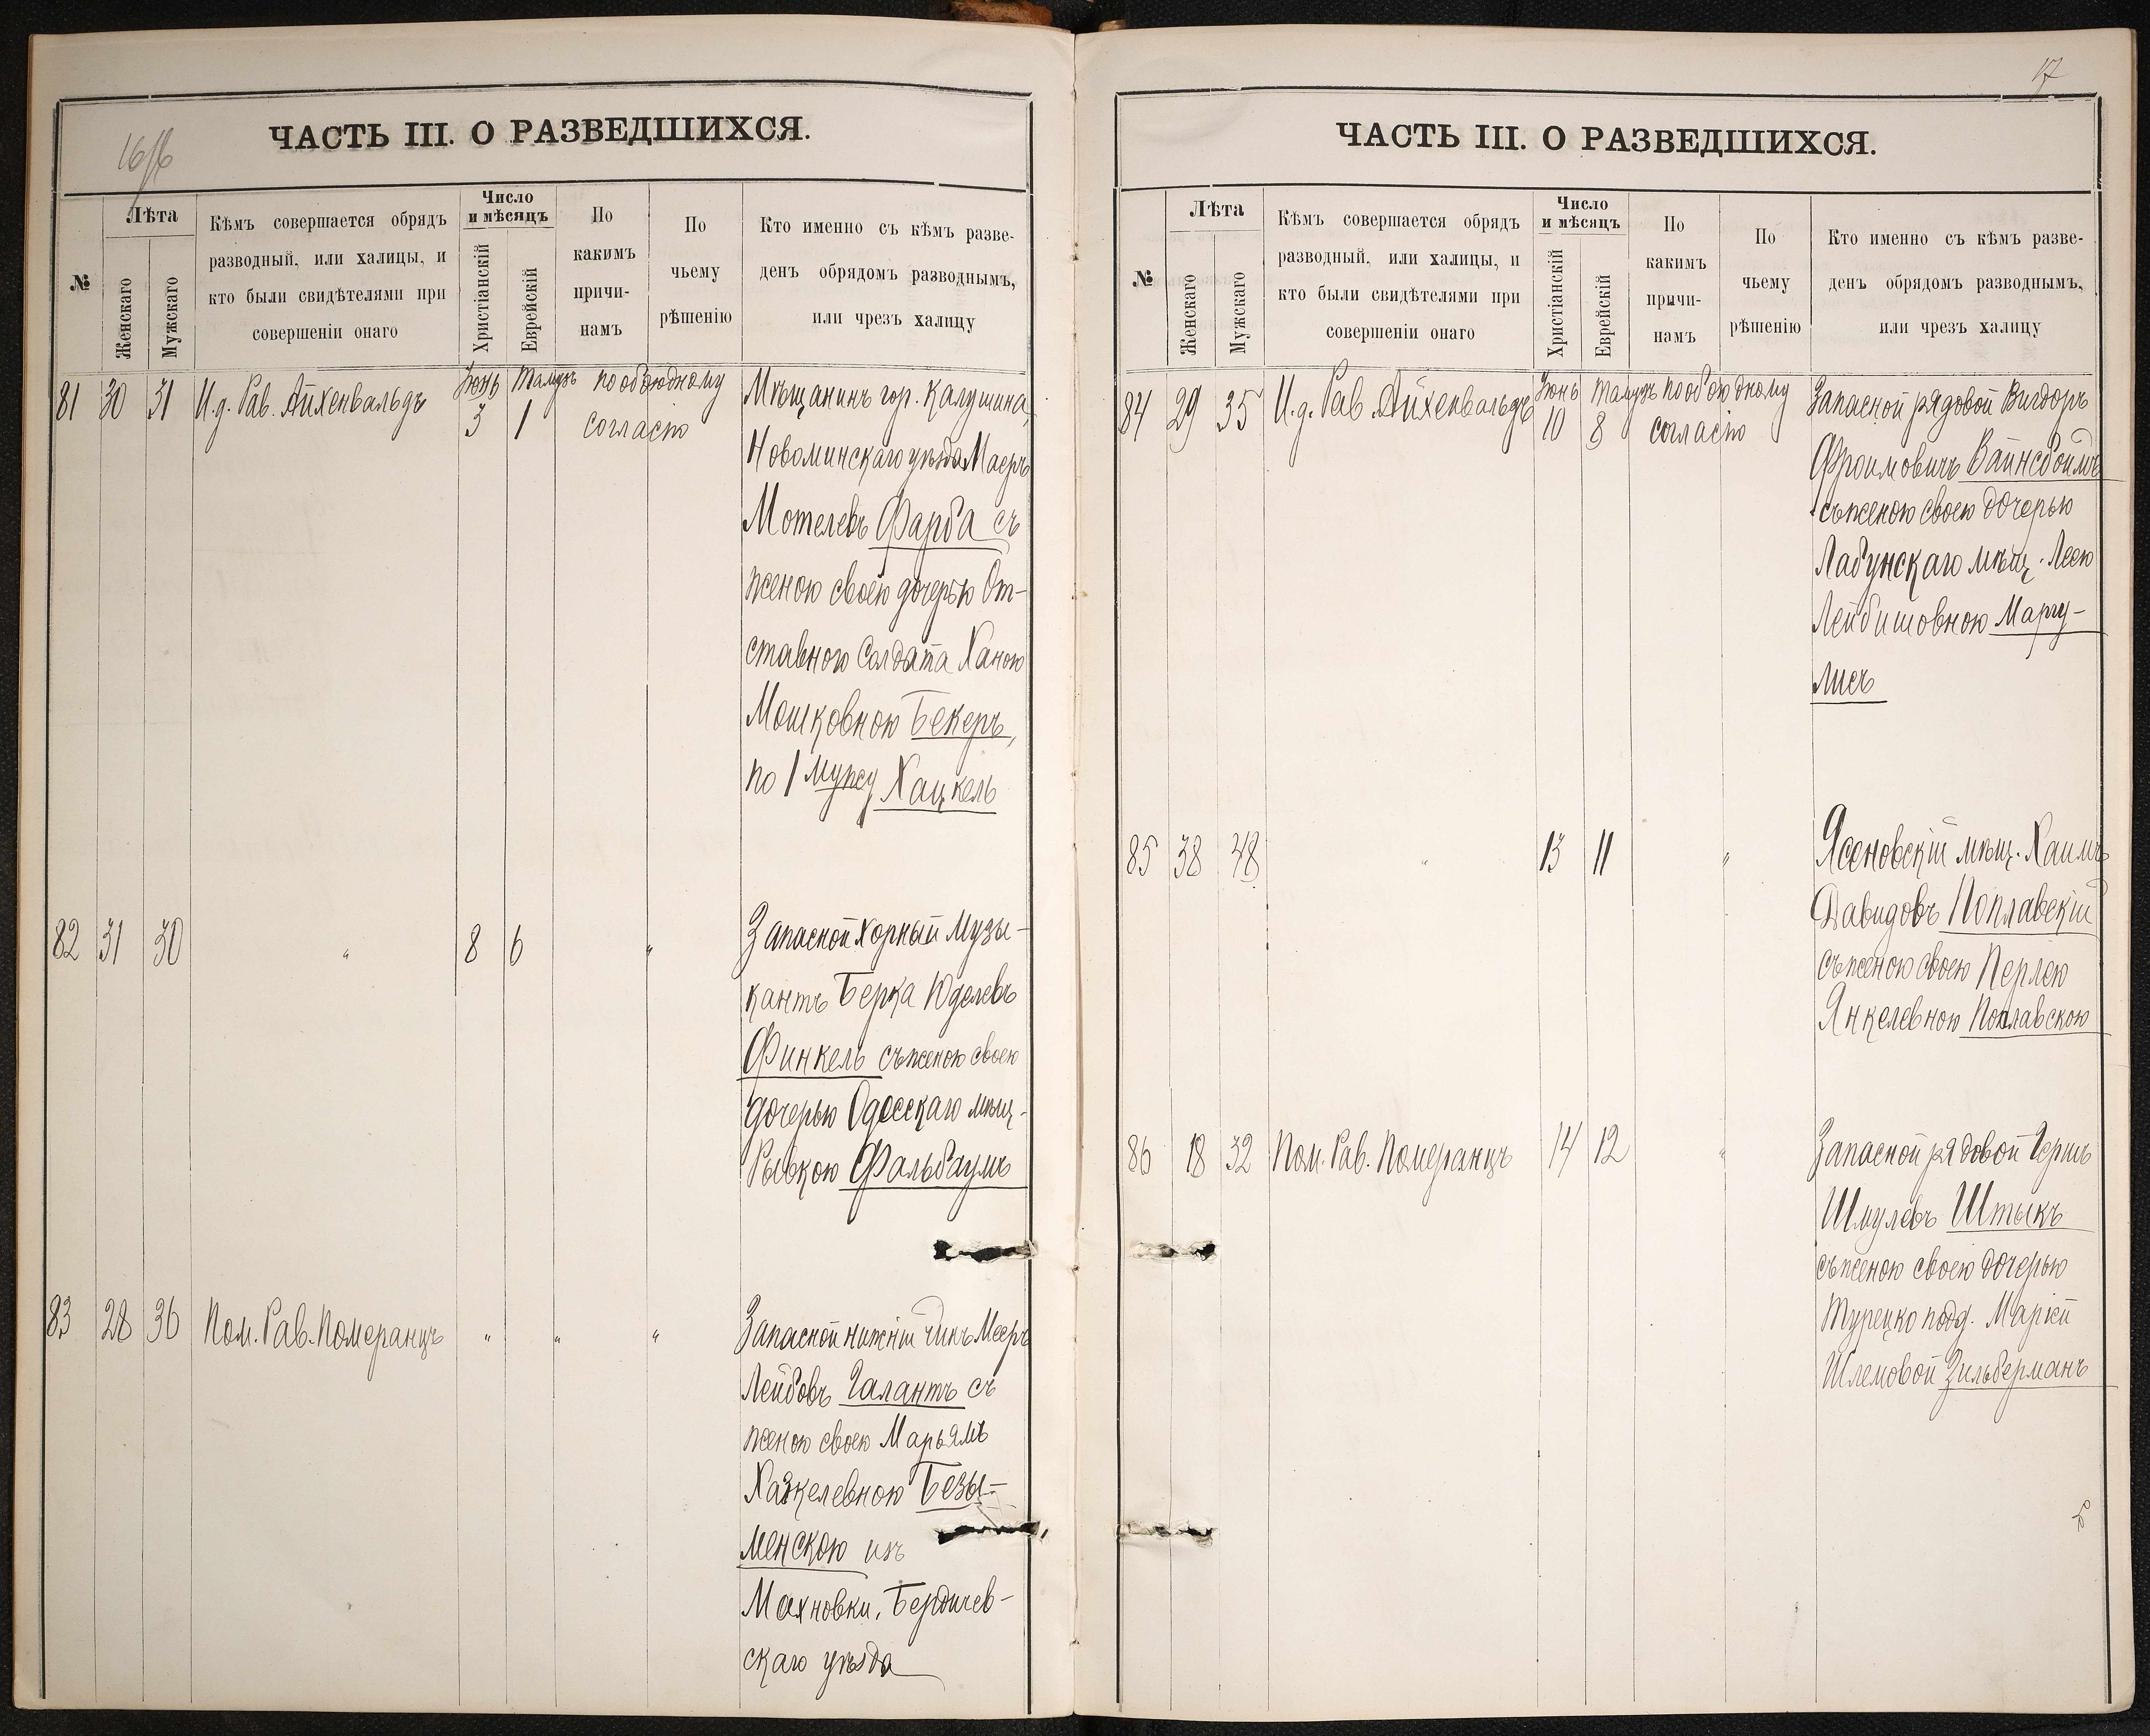 16/16
ЧАСТЬ III. О РАЗВЕДШИХСЯ.
№
Лѣта
Женскаго
Мужскаго
Кѣмъ совершается обрядъ
разводный, или халицы, и
кто были свидѣтелями при
совершеніи онаго
Число
и мѣсяцъ
Христіанскій
Еврейскій
По
какимъ
причи-
намъ
По
чьему
рѣшенію
Кто именно съ кѣмъ разве-
денъ обрядомъ разводнымъ,
или чрезъ халицу
81 30 31 И.д. Рав. Айхенвальдъ Іюнь 3 Тамузъ 1 по обоюдному
согласію
Мѣщанинъ гор. Калушина,
Новоминскаго уѣзда Маеръ
Мотелевъ Фарба съ
женою своею дочерью От-
ставного Солдата Ханою
Мошковною Бекеръ,
по 1 мужу Хацкель
82 31 30 " 8 6 "
Запасной Хорный Музы-
кантъ Берка Юделевъ
Финкель съ женою своею
дочерью Одесскаго мѣщ.
Рывкою Фальбаумъ
83 28 36 Пом. Рав. Померанцъ " " "
Запасной нижній чинъ Мееръ
Лейбовъ Галантъ съ
женою своею Марьямъ
Хазкелевною Безы-
менскою изъ
Махновки, Бердичев-
скаго уѣзда
17
ЧАСТЬ III. О РАЗВЕДШИХСЯ.
№
Лѣта
Женскаго
Мужскаго
Кѣмъ совершается обрядъ
разводный, или халицы, и
кто были свидѣтелями при
совершеніи онаго
Число
и мѣсяцъ
Христіанскій
Еврейскій
По
какимъ
причи-
намъ
По
чьему
рѣшенію
Кто именно съ кѣмъ разве-
денъ обрядомъ разводнымъ,
или чрезъ халицу
84 29 35 И.д. Рав. Айхенвальдъ Іюнь 10 Тамузъ 8 по обоюдному
согласію
Запасной рядовой Вигдоръ
Фроимовичъ Вайнсбоймъ
съ женою своею дочерью
Лабунскаго мѣщ. Леею
Лейбишовною Маргу-
лисъ
85 38 48 " 13 11 "
Ясеновскій мѣщ. Хаимъ
Давидовъ Поплавскій
съ женою своею Перлею
Янкелевною Поплавскою
86 18 32 Пом. Рав. Померанцъ 14 12 "
Запасной рядовой Гершъ
Шмулевъ Штыкъ
съ женою своею дочерью
Турецко подд. Маріей
Шлемовой Зильберманъ